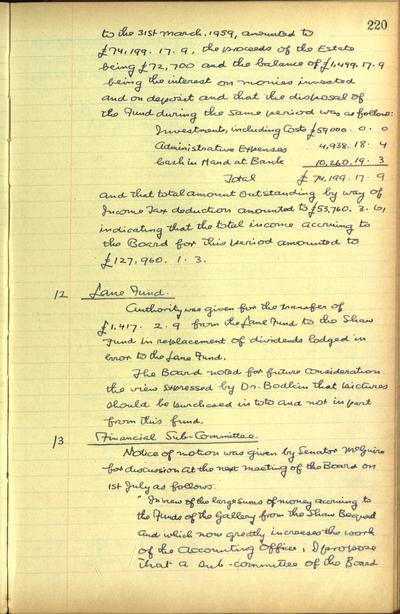 220
to the 31st March, 1959, amounted to
£74,199. 17. 9, the proceeds of the Estate
being £72,700 and the balance of £1,499.17.9
being the interest on monies invested
and on deposit and that the disposal of
the Fund during the same period was as follows:
Investments, including Costs £59000. 0. 0
Administrative Expenses 4,938. 18. 4
Cash in Hand at Bank 10,260.19. 3
Total £ 74,199. 17. 9
and that total amount outstanding by way of
Income Tax deduction amounted to £53,760. 3. 6,
indicating that the total income accruing to
the Board for this period amounted to
£127,960. 1. 3.
12 Lane Fund.
Authority was given for the transfer of
£1,417. 2. 9 from the Lane Fund to the Shaw
Fund in replacement of dividends lodged in
error to the Lane Fund.
The Board noted for future consideration
the view expressed by Dr. Bodkin that pictures
should be purchased in toto and not in part
from this fund.
13 Financial Sub-Committee.
Notice of motion was given by Senator McGuire
for discussion at the next meeting of the Board on
1st July as follows:
"In view of the large sums of money accruing to
the Funds of the Gallery from the Shaw Bequest
and which now greatly increases the work
of the Accounting Officer, I propose
that a sub-committee of the Board